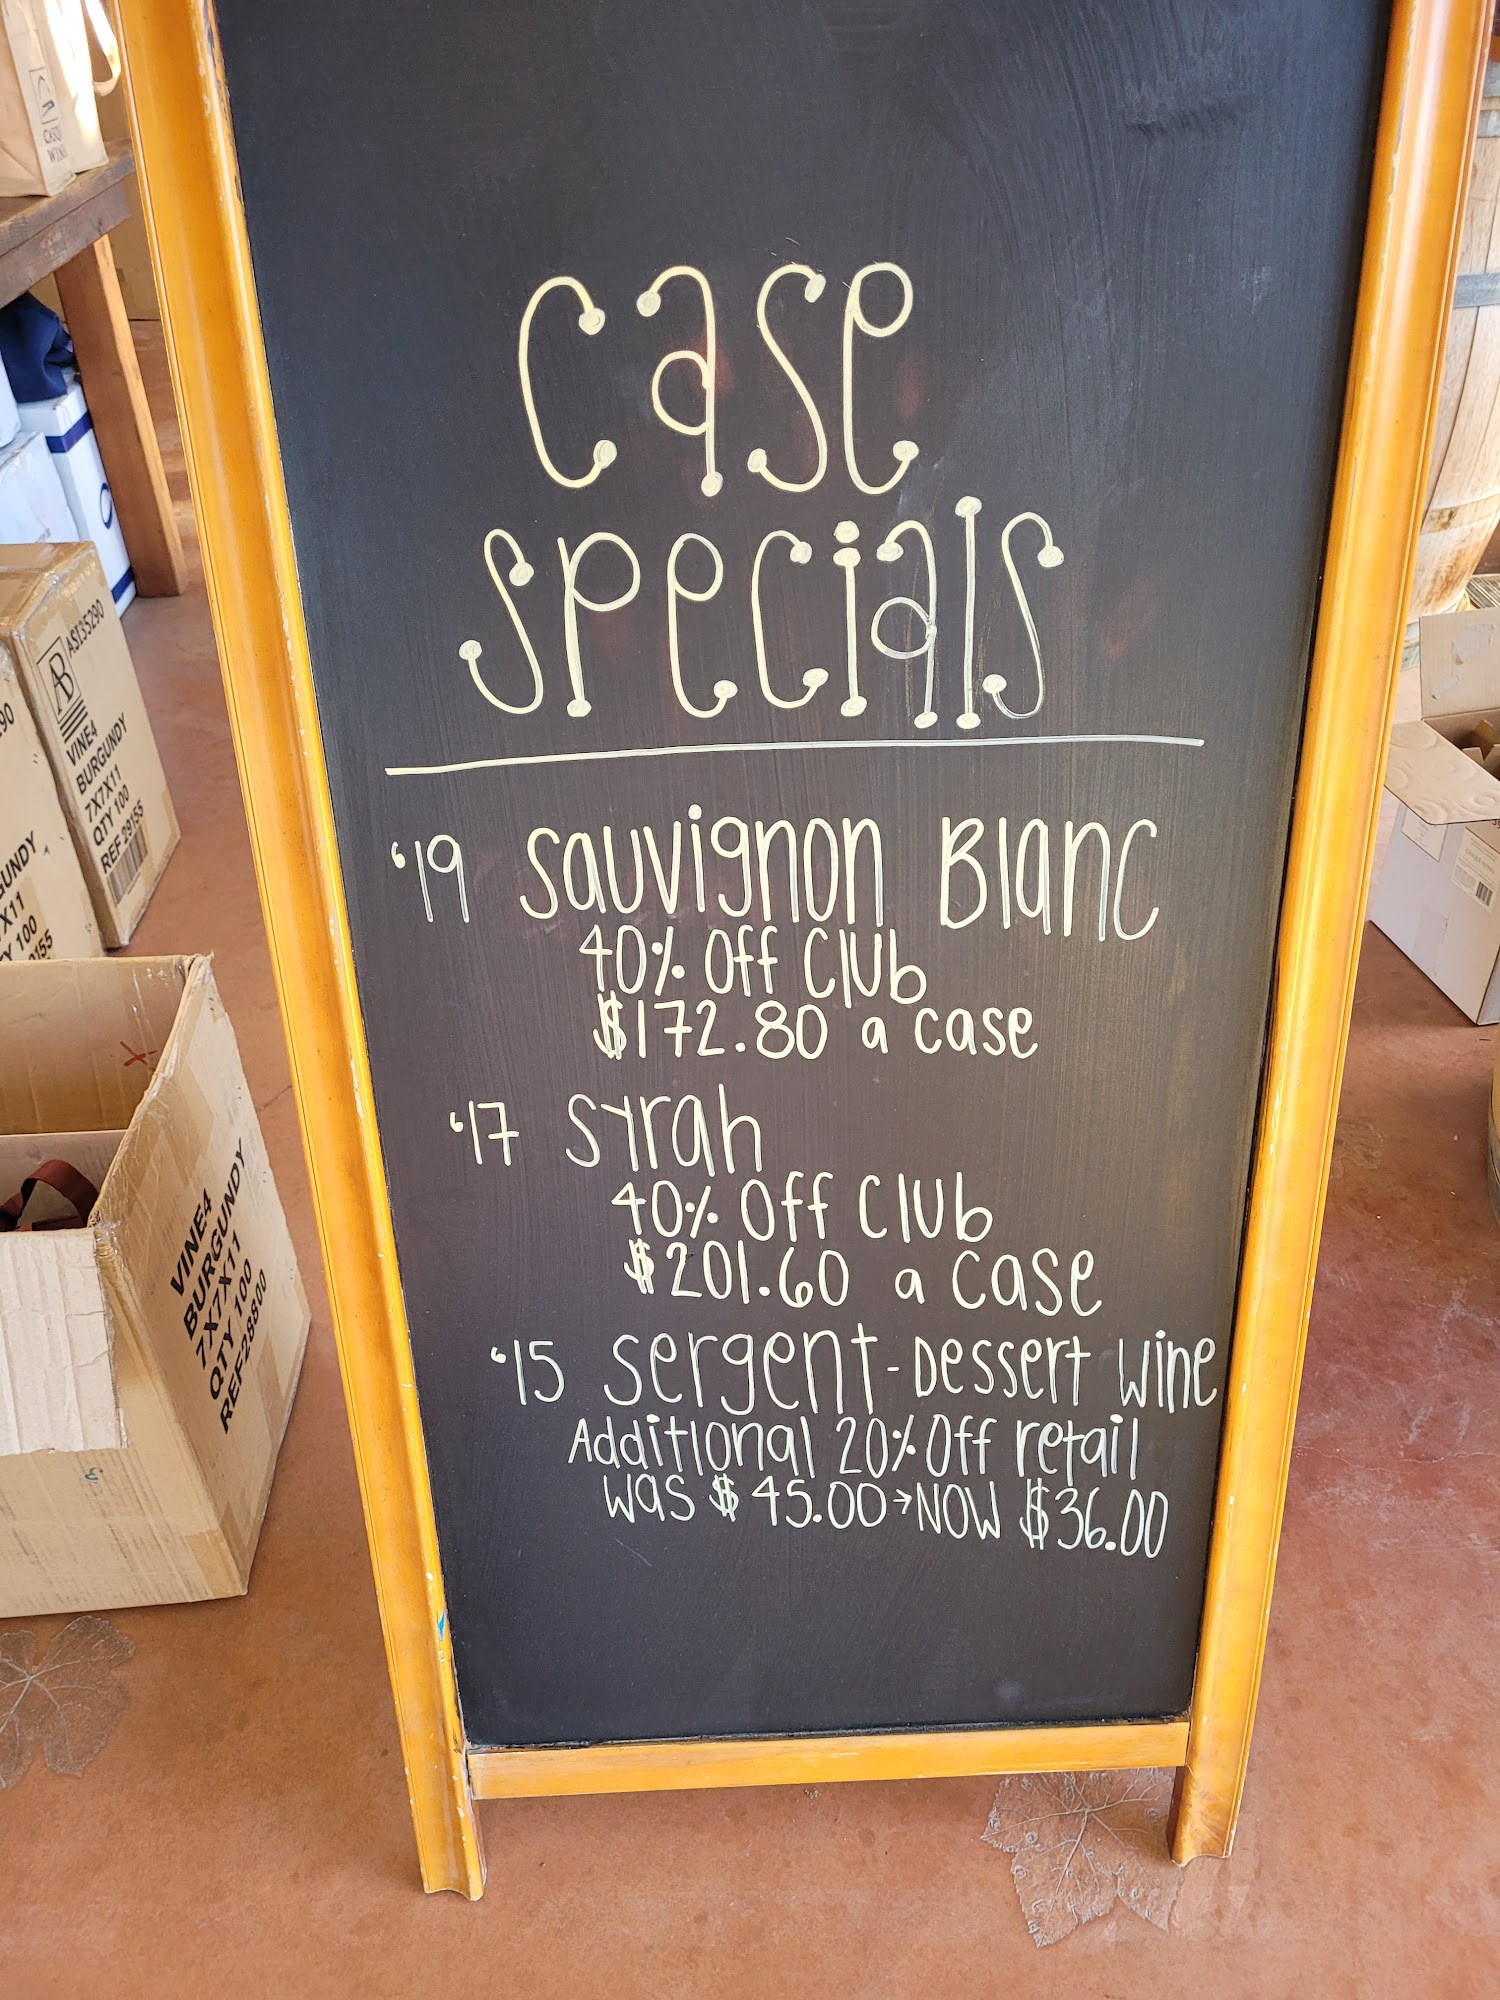 case
specials
'19 Sauvignon Blanc
40% Off Club
$172.80 a case
'17 Syrah
40% Off Club
$201.60 a case
'15 Sergent-Dessert Wine
Additional 20% Off retail
was $45.00→NOW $36.00
AB
ASI35290
VINE4
BURGUNDY
7X7X11
QTY 100
REF-29155
90
UNDY
X11
Y 100
VINE4
BURGUNDY
7X7X11
QTY 100
REF-28800